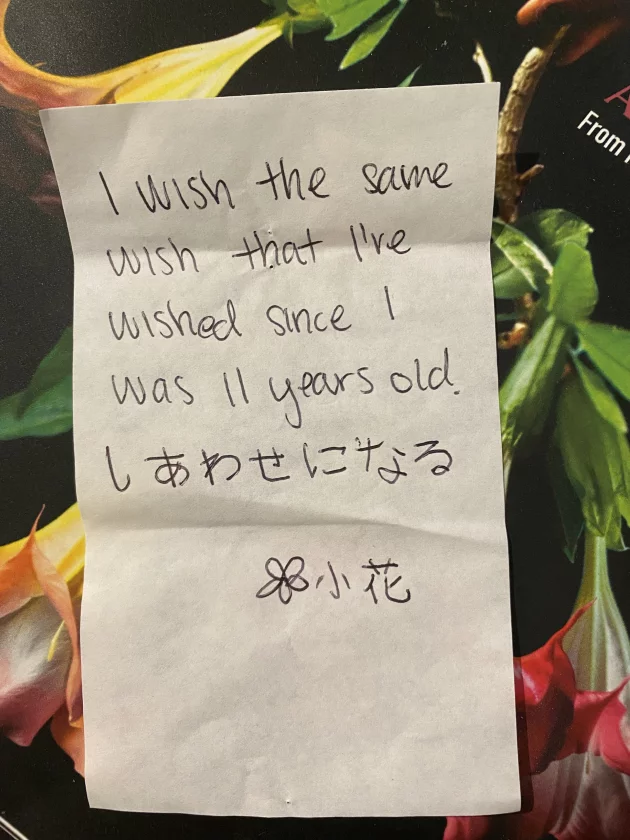 I wish the same
wish that I've
wished since I
was 11 years old.
しあわせになる
小花
From